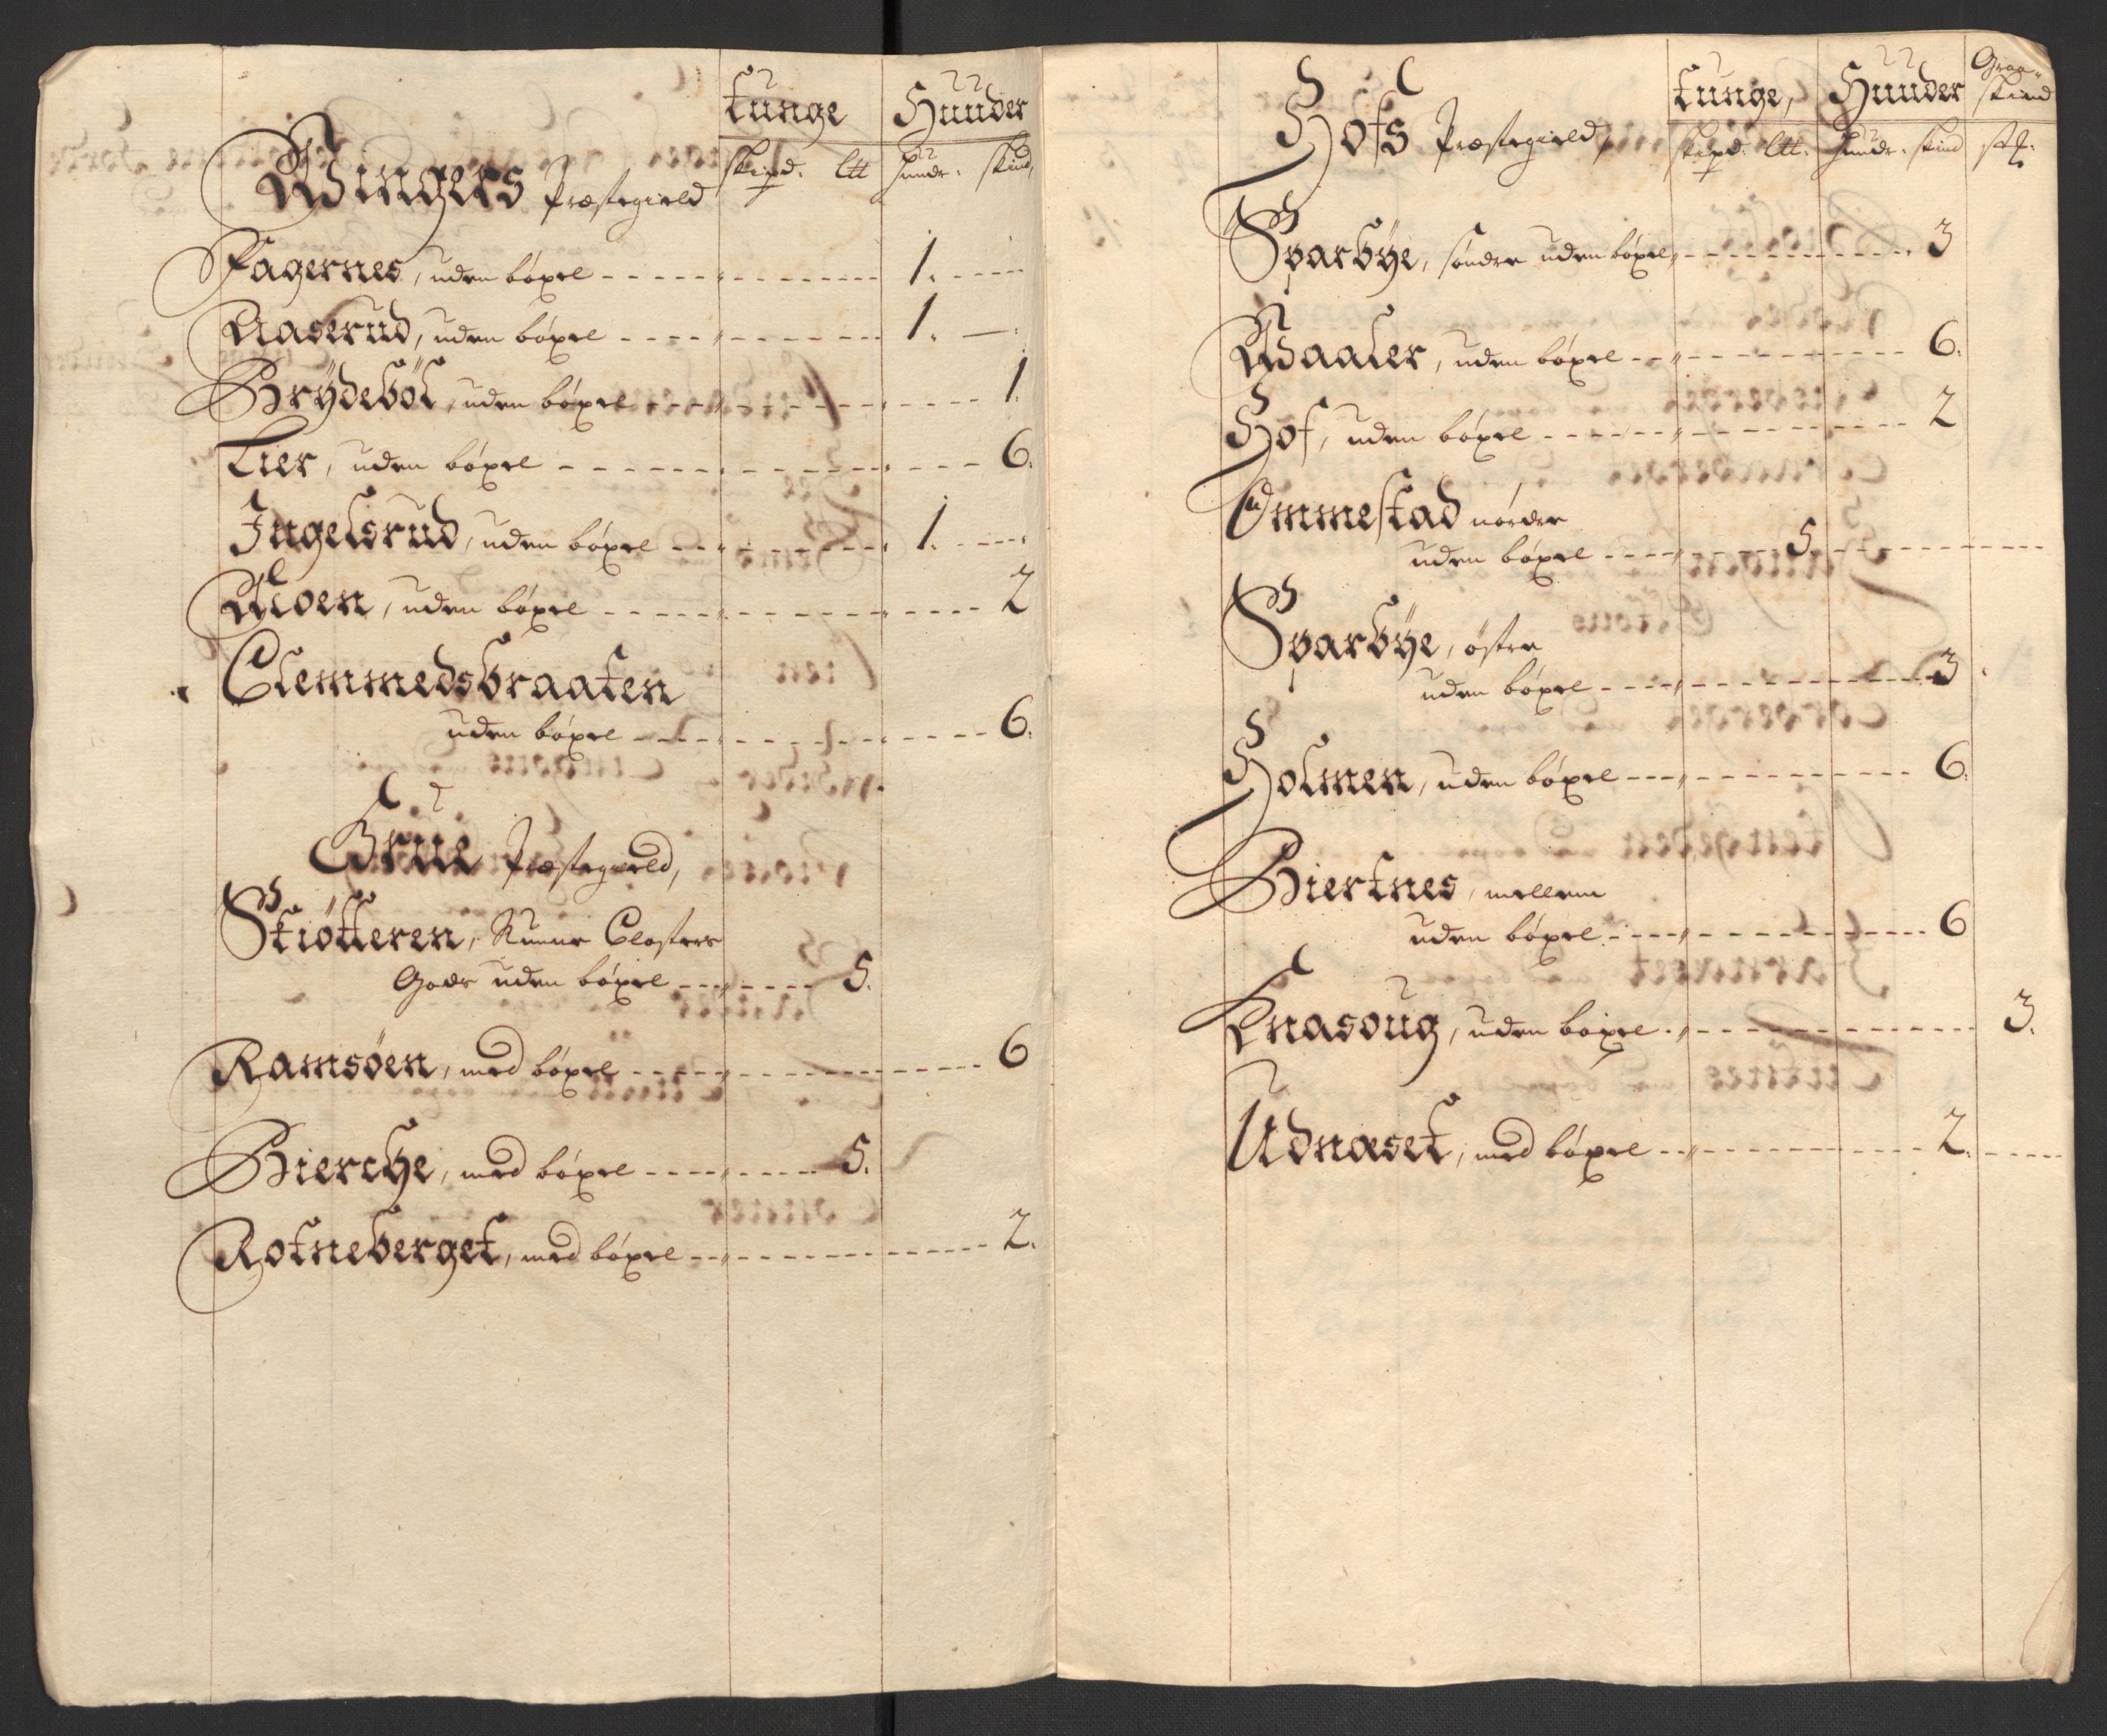 Tunge Huuder
Wingers Præstegield Skipd: Ltt hundr: skind
Fagernes, uden böxel 1.
Aaserud, uden böxel 1.
Brÿdeböl, uden böxel 1.
Lier, uden böxel 6.
Ingelsrud, uden böxel 1.
Moen, uden böxel 2
Clemmedsbraaten
uden böxel 6.
Grue Præstegield,
Stiötteren, Nunne Closters
Gods uden böxel 5.
Ramsöen, med böxel 6
Bierche, med böxel 5.
Rotneberget, med böxel 2.
Tunge, Huuder Graa-
skind
Hofs Præstegield, Skipd: Ltt: hundr: skind stk:
Sparbÿe, sönder uden böxel, 3
Waaler, uden böxel 6.
Hof, uden böxel 2
Ommestad nörder
uden böxel 5
Sparbÿe, östre
uden böxel 3
Holmen, uden böxel 6.
Biertnes, mellem
uden böxel 6
Knasoug, uden böxel 3.
Udnæset, med böxel 2.